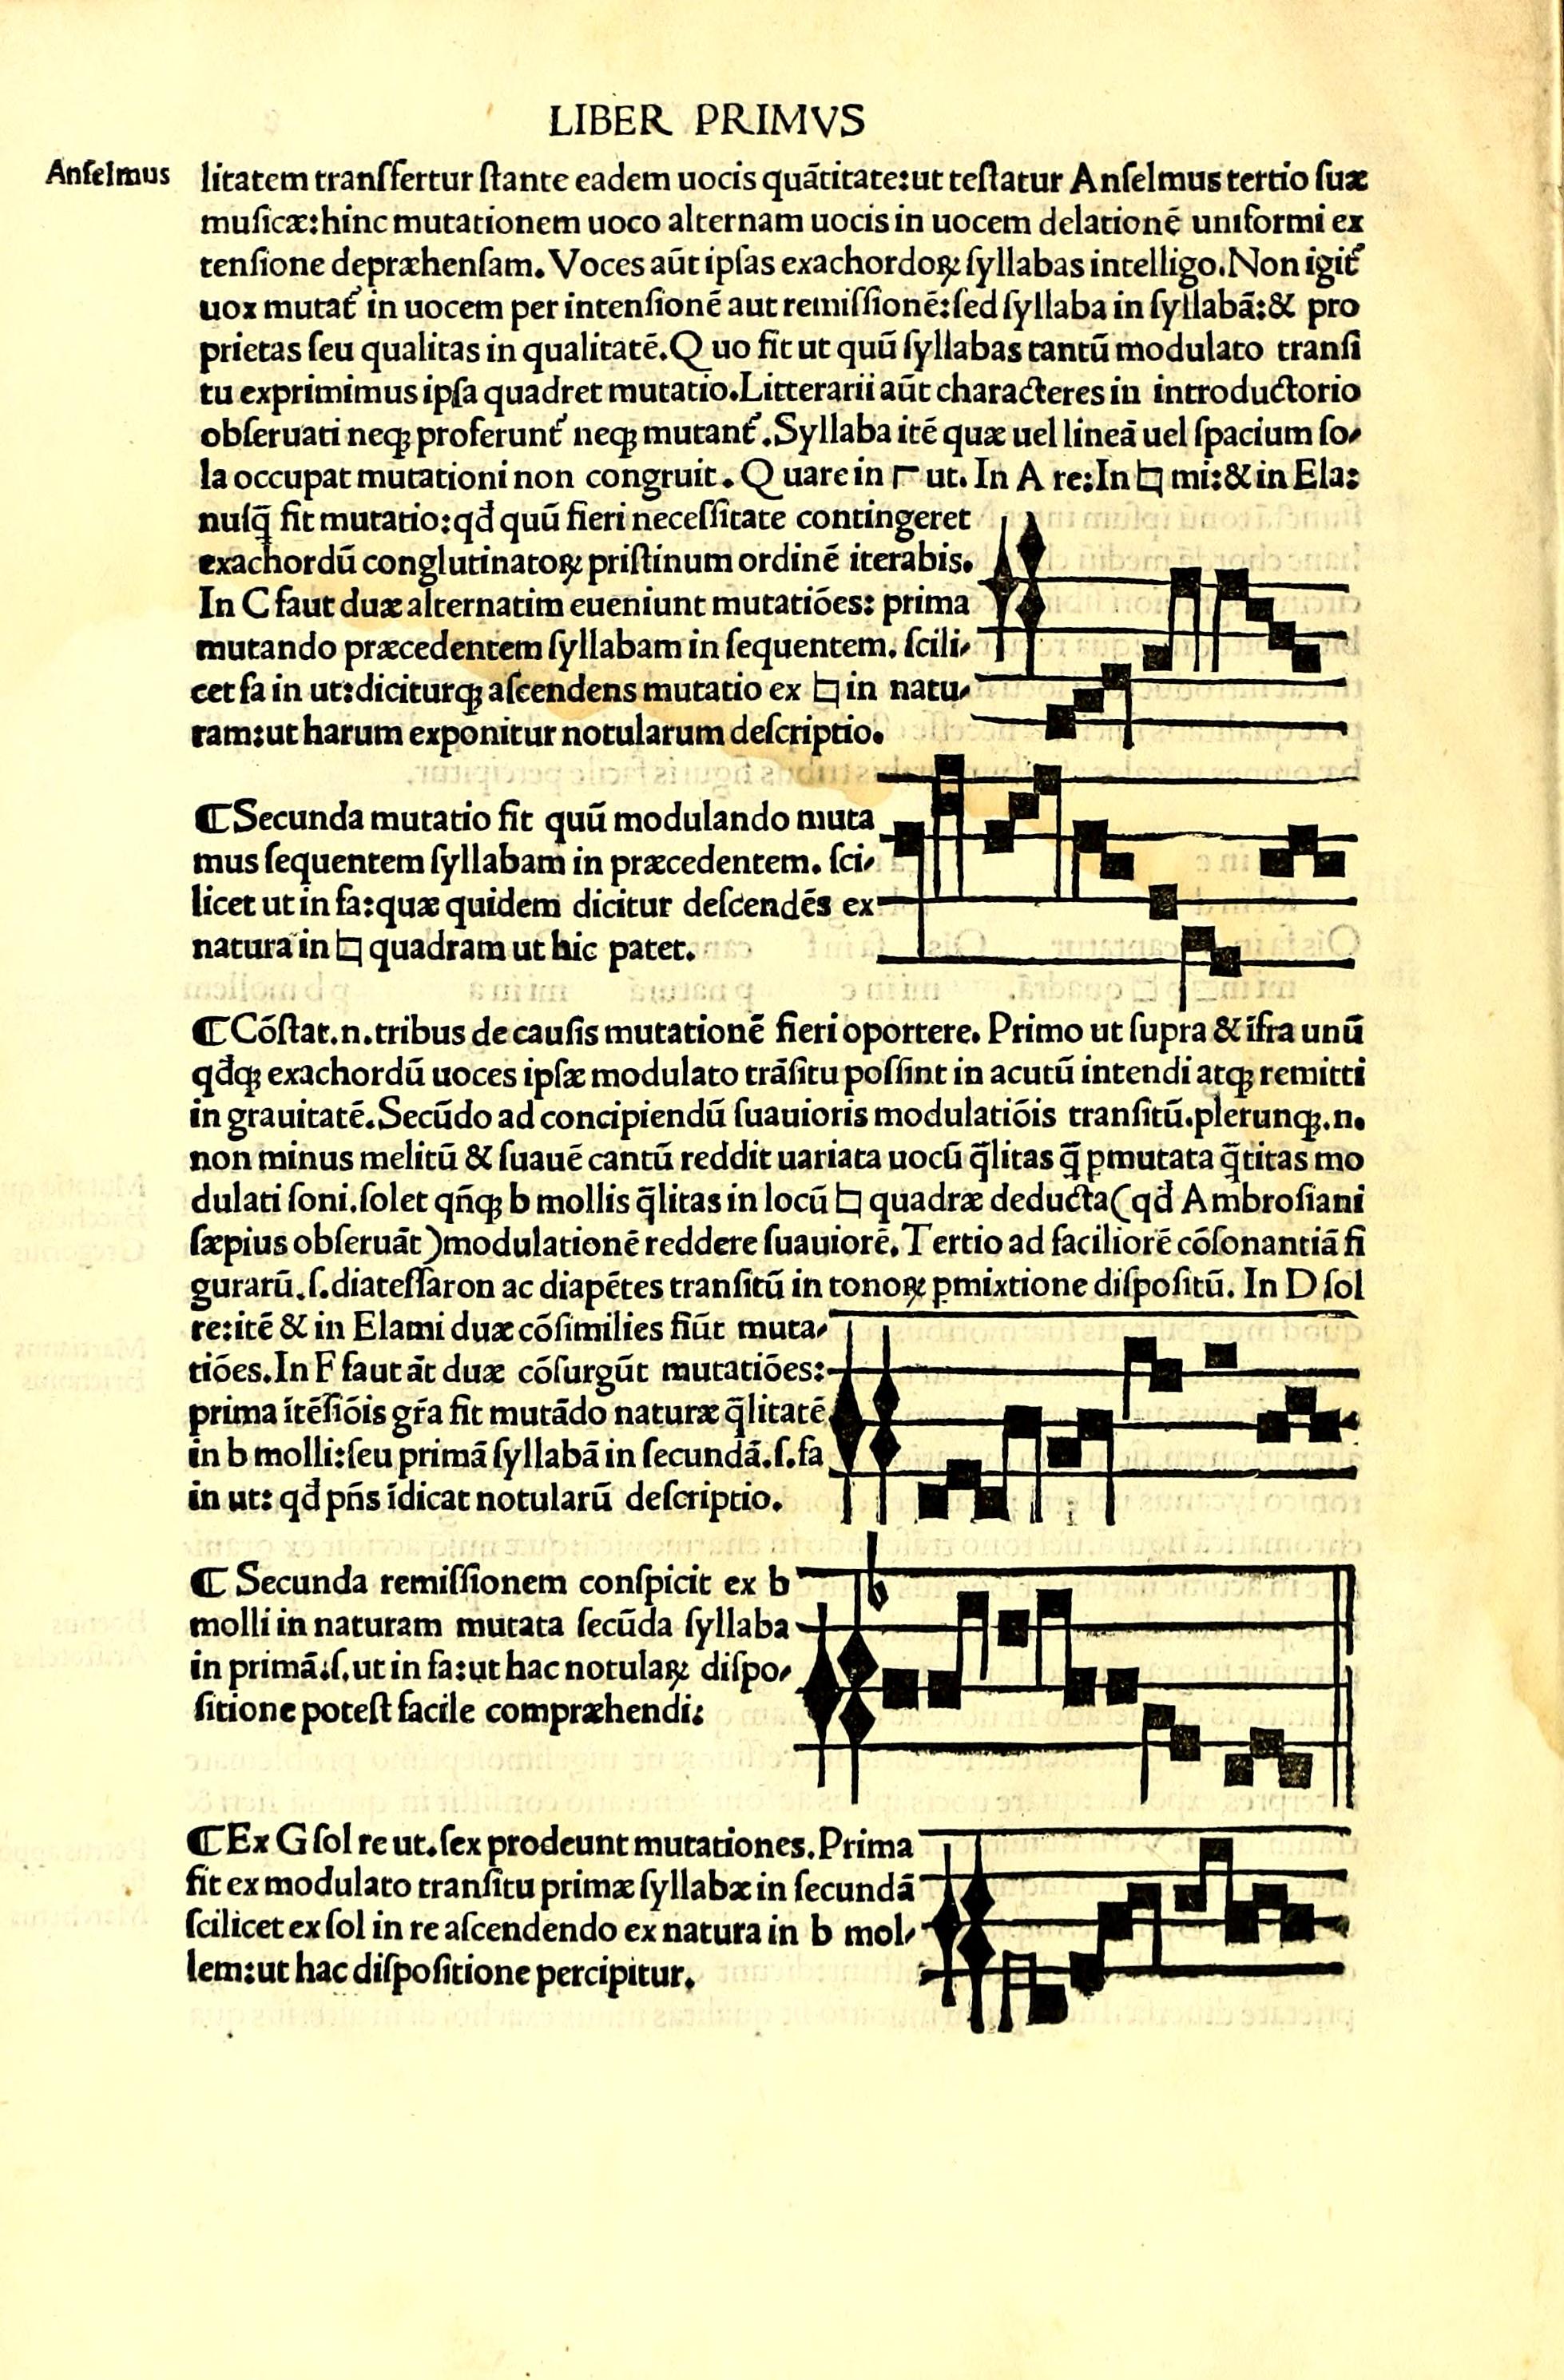 LIBER PRIMVS
Anſelmus
litatem tranſfertur ſtante eadem uocis quãtitate:ut teſtatur Anſelmus tertio ſuæ
muſicæ:hinc mutationem uoco alternam uocis in uocem delationẽ uniformi ex
tenſione depræhenſam. Voces aũt ipſas exachordoꝝ ſyllabas intelligo. Non igit᷑
uox mutat᷑ in uocem per intenſionẽ aut remiſſionẽ:ſed ſyllaba in ſyllabã:& pro
prietas ſeu qualitas in qualitatẽ. Quo fit ut quũ ſyllabas tantũ modulato tranſi
tu exprimimus ipſa quadret mutatio. Litterarii aũt characteres in introductorio
obſeruati neqꝫ proferunt᷑ neqꝫ mutant᷑. Syllaba itẽ quæ uel lineã uel ſpacium ſo⸗
la occupat mutationi non congruit. Quare in Γ ut. In A re:In ♮ mi:& in Ela:
nuſq̃ fit mutatio:qđ quũ fieri neceſſitate contingeret
exachordũ conglutinatoꝝ priſtinum ordinẽ iterabis.
In C faut duæ alternatim eueniunt mutatiões: prima
mutando præcedentem ſyllabam in ſequentem. ſcili⸗
cet fa in ut:diciturqꝫ aſcendens mutatio ex ♮ in natu⸗
ram:ut harum exponitur notularum deſcriptio.
¶Secunda mutatio fit quũ modulando muta
mus ſequentem ſyllabam in præcedentem. ſci⸗
licet ut in fa:quæ quidem dicitur deſcendẽs ex
natura in ♮ quadram ut hic patet.
¶Cõſtat.n.tribus de cauſis mutationẽ fieri oportere. Primo ut ſupra & ĩfra unũ
qđqꝫ exachordũ uoces ipſæ modulato trãſitu poſſint in acutũ intendi atqꝫ remitti
in grauitatẽ. Secũdo ad concipiendũ ſuauioris modulatiõis tranſitũ.plerunqꝫ.n.
non minus melitũ & ſuauẽ cantũ reddit uariata uocũ q̃litas q̃ ꝑmutata q̃titas mo
dulati ſoni.ſolet qñqꝫ b mollis q̃litas in locũ ♮ quadræ deducta(qđ Ambroſiani
ſæpius obſeruãt)modulationẽ reddere ſuauiorẽ. Tertio ad faciliorẽ cõſonantiã fi
gurarũ.ſ.diateſſaron ac diapẽtes tranſitũ in tonoꝝ ꝑmixtione diſpoſitũ. In D ſol
re:itẽ & in Elami duæ cõſimilies fiũt muta⸗
tiões. In F faut ãt duæ cõſurgũt mutatiões:
prima ĩtẽſiõis gr̃a fit mutãdo naturæ q̃litatẽ
in b molli:ſeu primã ſyllabã in ſecundã.ſ.fa
in ut: qđ pñs ĩdicat notularũ deſcriptio.
b
¶ Secunda remiſſionem conſpicit ex b
molli in naturam mutata ſecũda ſyllaba
in primã.ſ.ut in fa:ut hac notulaꝝ diſpo⸗
ſitione poteſt facile compræhendi:
¶Ex G ſol re ut.ſex prodeunt mutationes. Prima
fit ex modulato tranſitu primæ ſyllabæ in ſecundã
ſcilicet ex ſol in re aſcendendo ex natura in b mol⸗
lem:ut hac diſpoſitione percipitur.